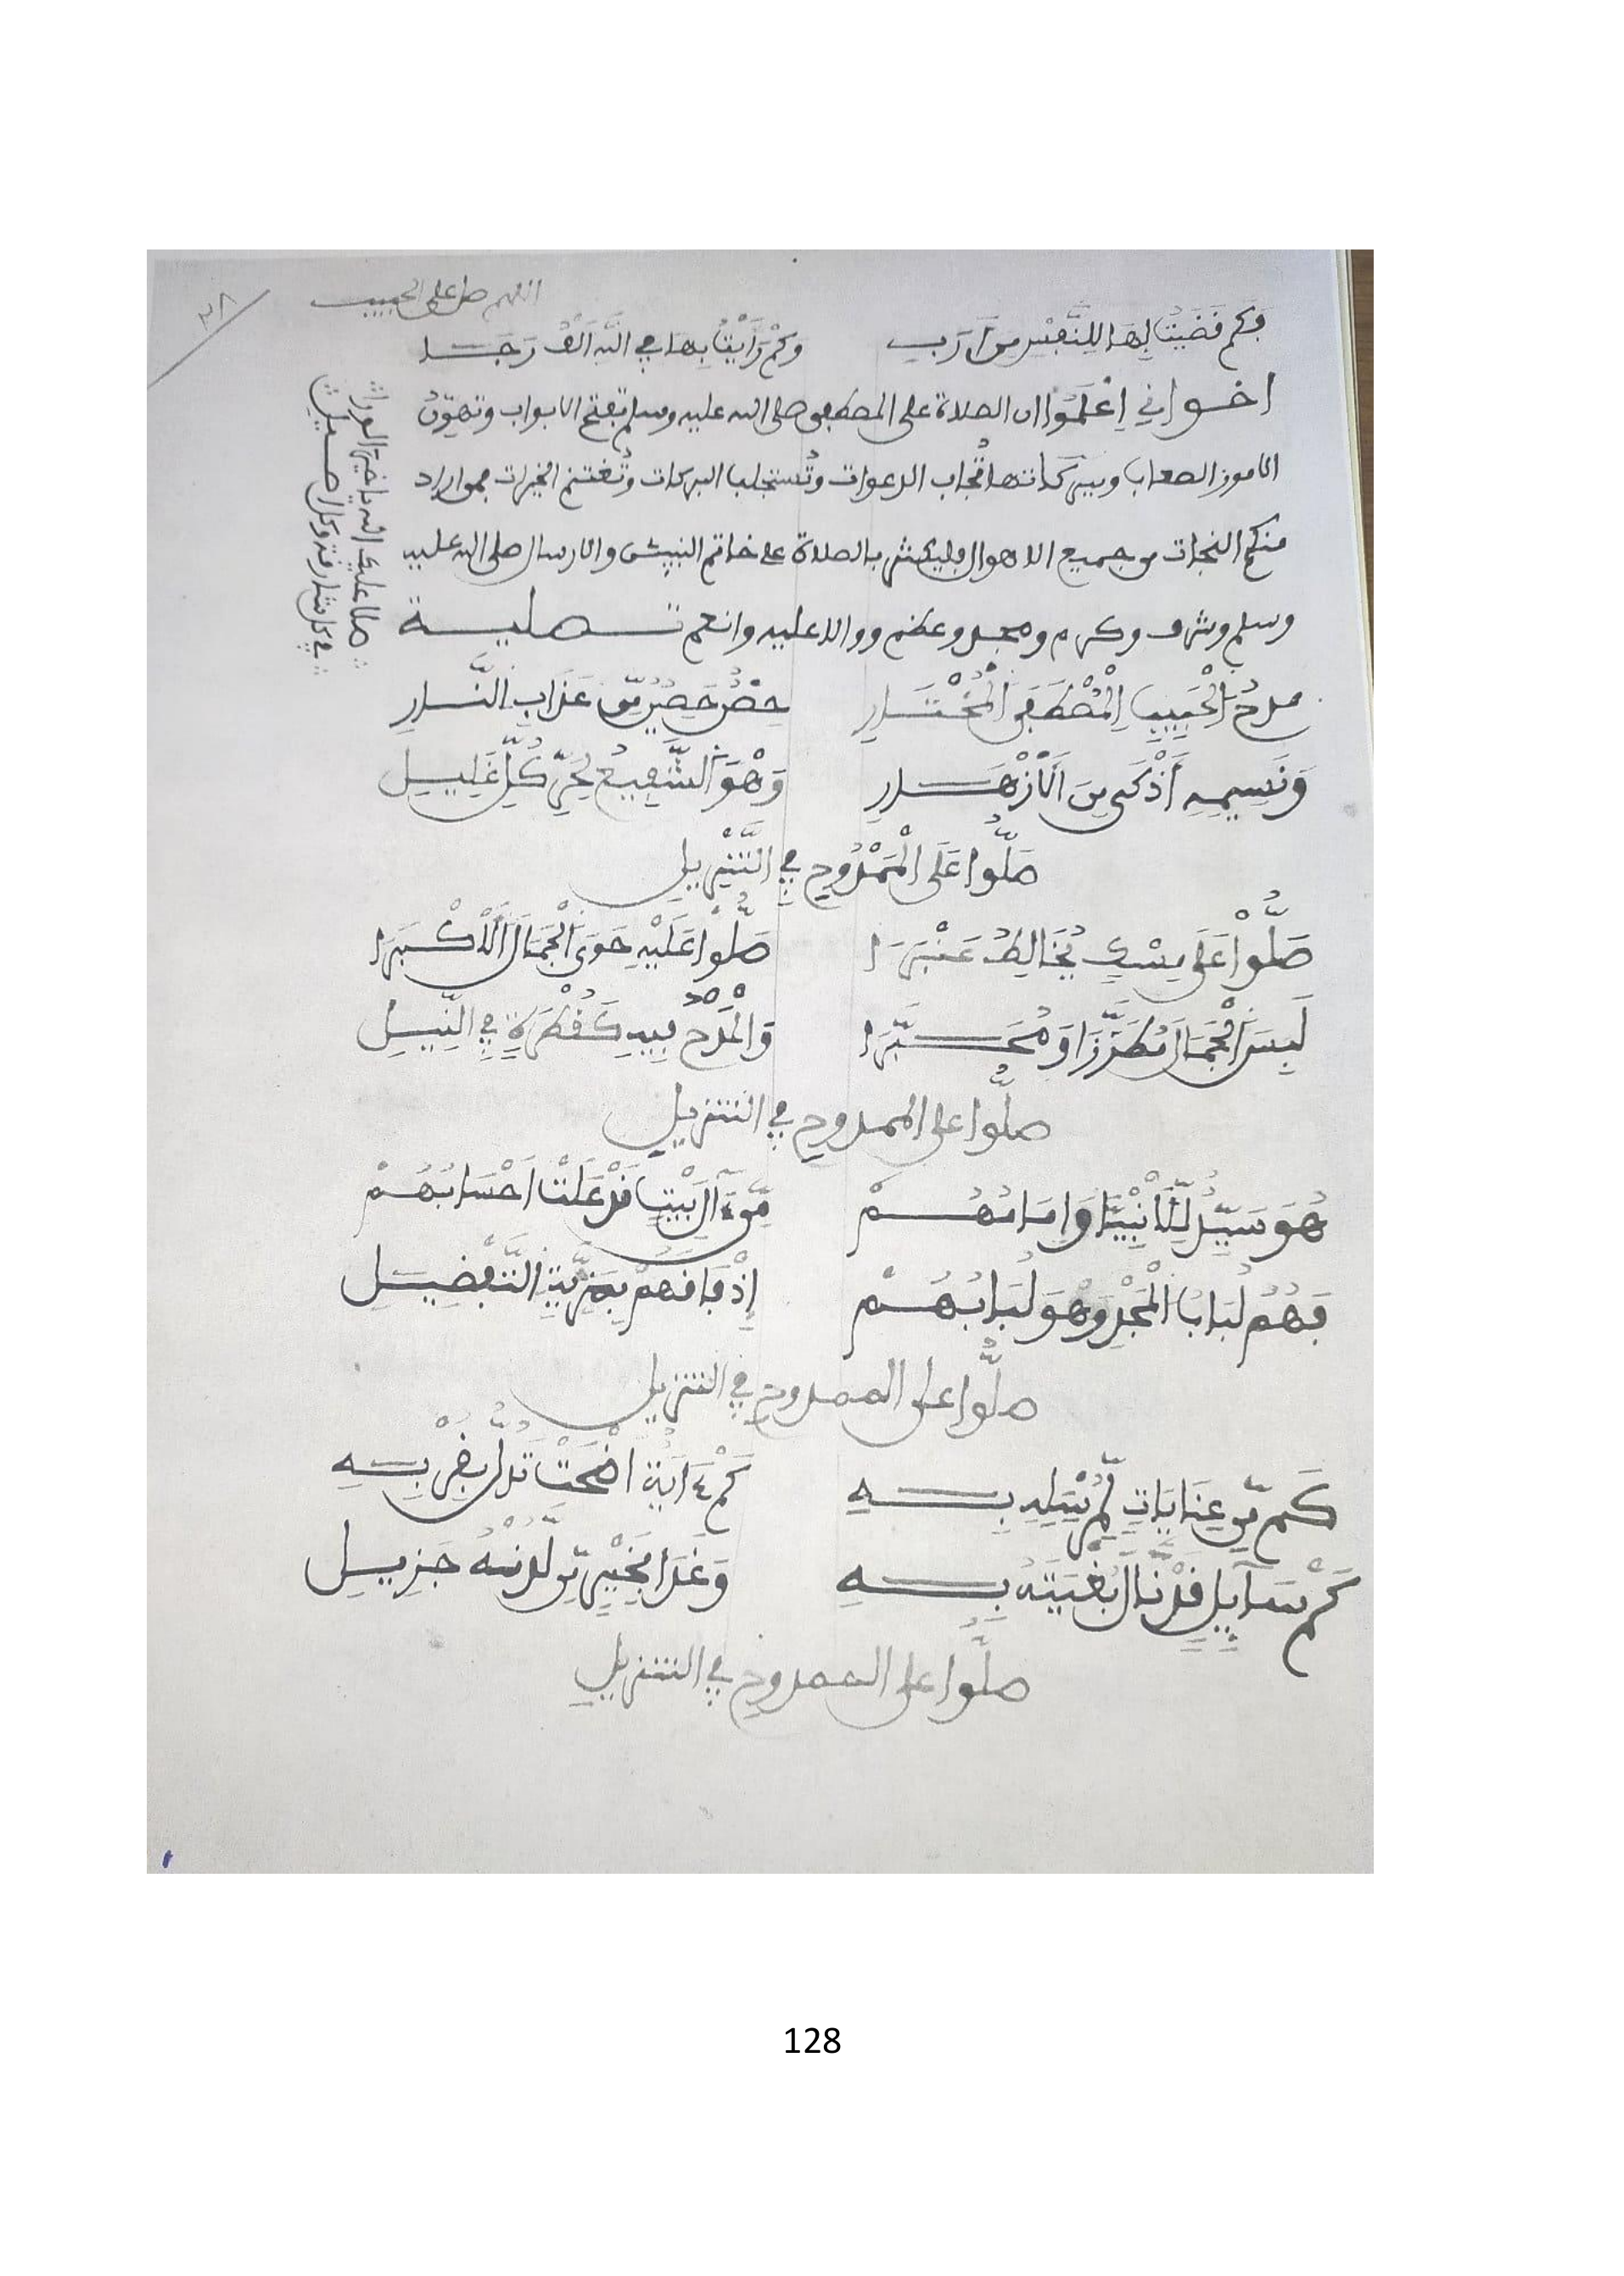 ٣٨
اللهم صل على الحبيب
وَكَم قَضَيْتُ لِهَا لِلنَّفْسِ مِنَ أَرَبِ وَكَمْ رَأَيْتُ بِهَا فِي اللَّهِ أَلْفَ رَجَا
اخواني اِعْلَمُوا ان الصلاة على المصطفى صلى الله عليه وسلم تفتح الابواب وتهوّنُ
الامور الصعاب وببركاتها تُجاب الدعوات وتُستجلب البركات وتُغتنم الخيرات فمن اراد
منكم النجات من جميع الاهوال فليكثر بالصلاة على خاتم النبيين والارسال صلى الله عليه
وسلم وشرف وكرم ومجد وعظم ووالا عليه وانعم تصلية
صلا عليك الله يا خير الورا
في كل شارفة وكل
مدحُ الْحَبِيبِ الْمُصْطَفَى الْمُخْتَارِ حِصْنٌ حَصِينٌ مِّن عَذَابِ النَّارِ
وَنَسِيمِهِ أَذْكَى مِنَ الْأَزْهَارِ وَهْوَ الشَّفِيعُ لِحَرِّ كُلِّ غَلِيلِ
صَلُّوا عَلَى الْمَمْدُوحِ فِي التَّنْزِيلِ
صَلُّوا عَلَى مِسْكٍ يُخَالِطُ عَنْبَرَا صَلُّوا عَلَيْهِ حَوَى الْجَمَالَ الْأَكْبَرَا
لَبِسَ الْجَمَالَ مُطَرَّزَا وَمُحَبَّرَا وَالْمَدْحُ فِيهِ كَقُطْرَةٍ فِي النِّيلِ
صلّوا على الممدوح في التنزيل
هُوَ سَيِّدُ لِلْأَنْبِيَّا وَإِمَامُهُمْ مِّنَ آلِ بَيْتٍ قَدْ عَلَتْ أَحْسَابُهُمْ
فَهُمُ لُبَابُ الْمَجْدِ وَهْوَ لُبَابُهُمْ إِذْ فَاقَهُمْ بِمَزِيَّةِ التَّفْضِيلِ
صلّوا على الممدوح في التنزيل
كَم مِّن عِنَايَاتٍ لِّمُبْتَلِهِ بِهِ كَمْ ءَايَةٍ اضْحَتْ تَدُلُّ بِقُرْبِهِ
كَمْ سَآيِلٍ قَدْ نَّالَ بُغْيَتَهُ بِهِ وَغَدَا بِخَيْرٍ مِّن لَّدُنْهُ جَزِيلِ
صلّوا على الممدوح في التنزيل
128